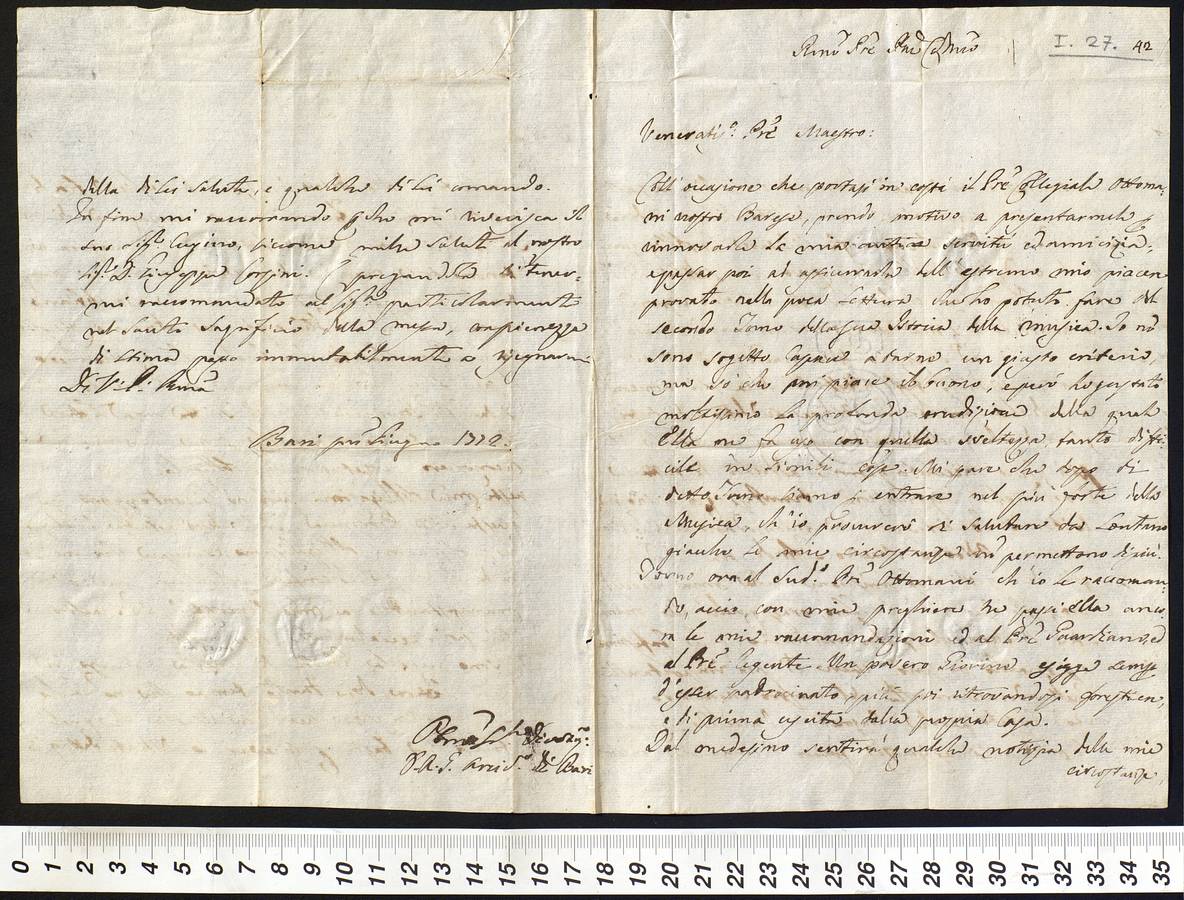 I. 27. 42
Rmo Pre Pne Cmo
Veneratis.o Pre Maestro:
Coll'occasione che portasi in costì il Pre Collegiale Ottoma-
ni nostro Barese, prendo motivo a presentarmele p
rinnovarle la mia antica servitù ed amicizia,
e passar poi ad assicurarla dell'estremo mio piacere
provato nella poca lettura che ho potuto fare del
secondo Tomo della sua Istoria della musica. Io nō
sono sogetto capace a darne un giusto criterio,
ma sò che poi piace il buono, e però ho gustato
moltissimo la profonda erudizione della quale
Ella ne fa uso con quella sveltezza tanto diffi-
cile in simili cose. Mi pare che dopo di
detto Tomo siamo p entrare nel più forte della
Musica, ch'io procurerò di salutare da lontano
giacche le mie circostanze nō permettono di più.
Torno ora al Sud.o Pre Ottomani ch'io le raccoman-
do, acciò con mie preghiere ne passi Ella anco-
ra le mie raccomandazioni ed al Pre Guardiano, ed
al Pre Regente. Un povero Giovine esigge sempe
d'esser padrocinato, più poi ritrovandosi forestiere,
e di prima uscita dalla propria Casa.
Dal medesimo sentirà qualche notizia delle mie
circostanze,
della di Lei salute, e qualche di Lei comando.
In fine mi raccomando che mi riverisca il
Suo Sigr. Cugino, siccome mille saluti al nostro
Sig.r D. Giuseppe Corsini. E pregandola di tener-
mi raccomandato al Sig.re particolarmente
nel Santo Sagrificio della messa, con pienezza
di stima passo immutabilmente a rassegnarmi
Di V. P. Rma
Bari pmo Giugno 1772.
di Bari